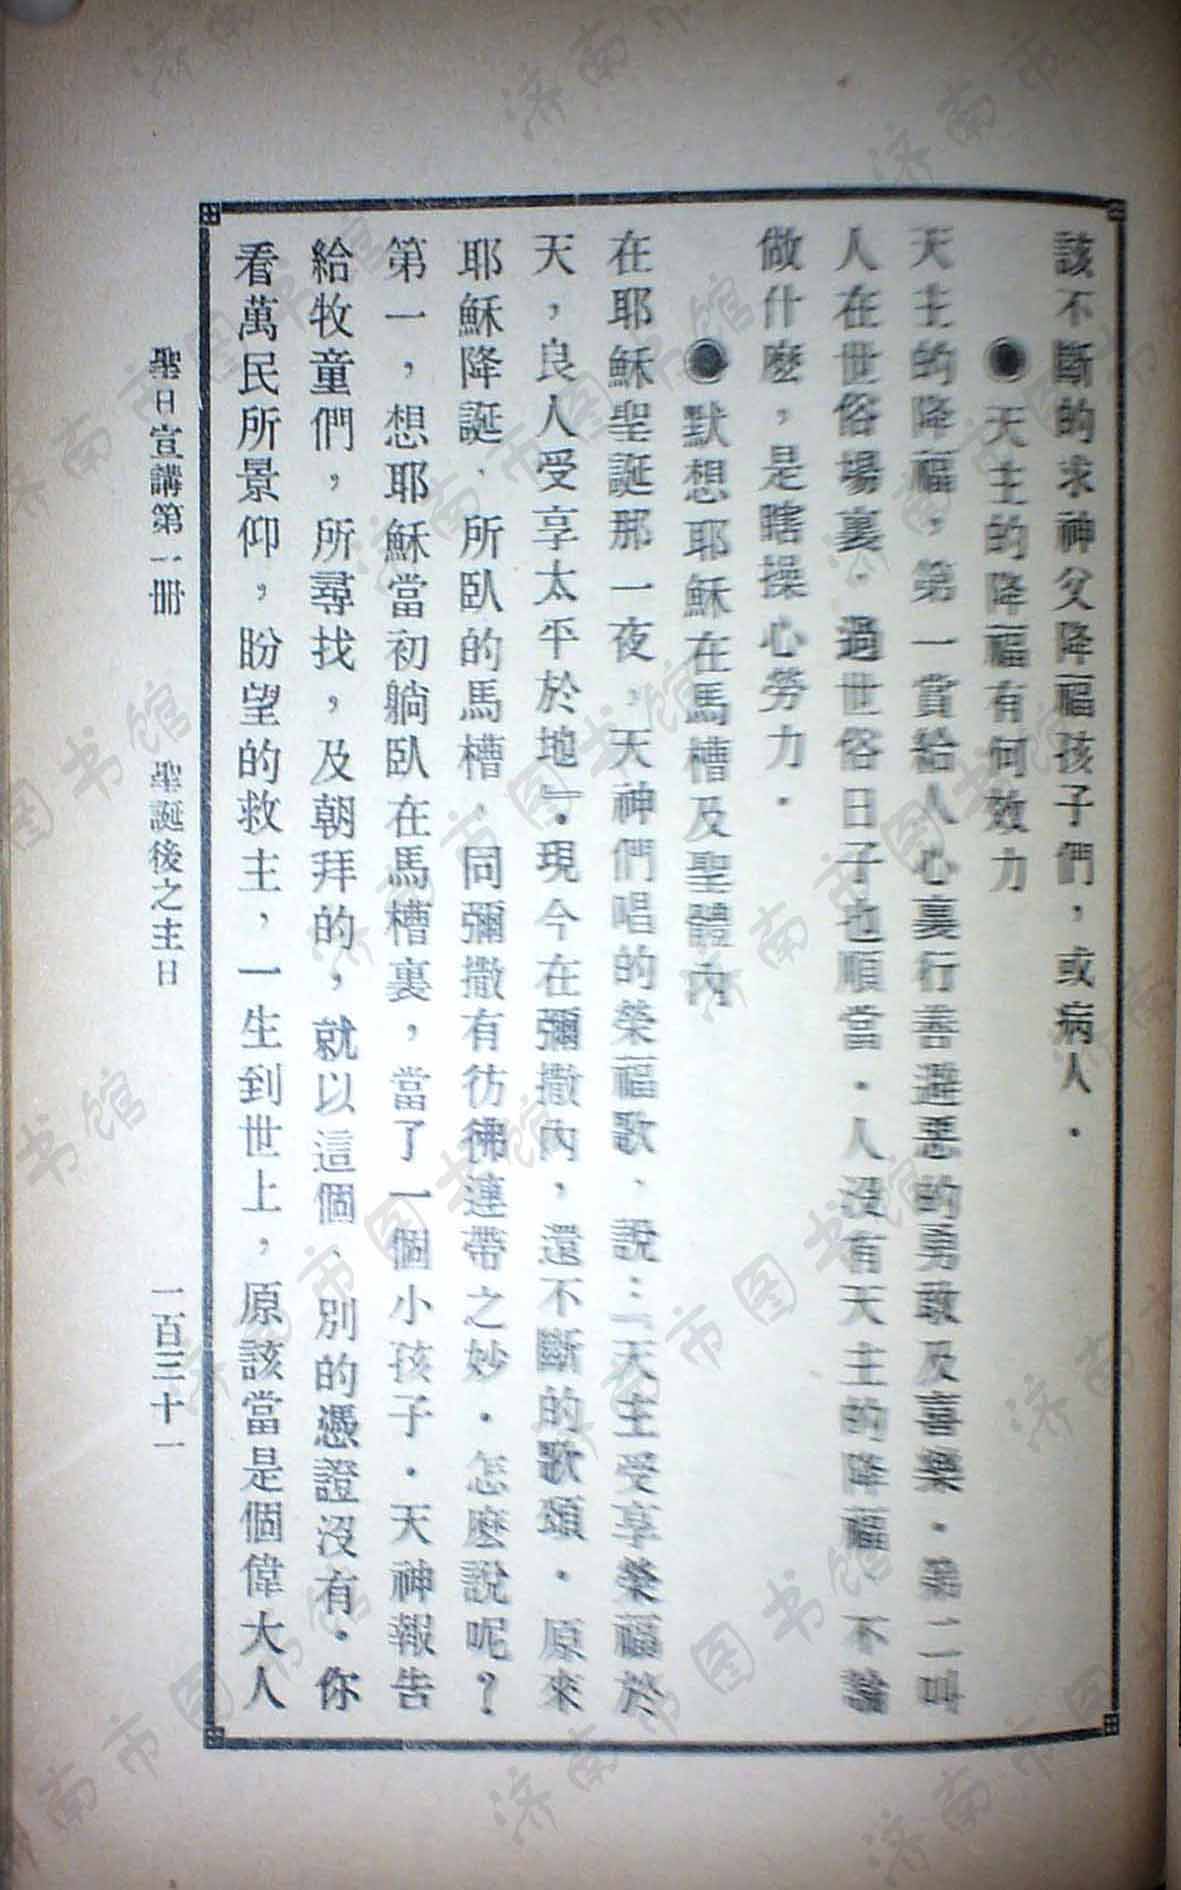 該不斷的求神父降福孩子們，或病人．
◉天主的降福有何效力
天主的降福，第一賞給人心裏行善避惡的勇敢及喜樂．第二叫
人在世俗場裏．過世俗日子也順當．人沒有天主的降福、不論
做什麼，是瞎操心勞力．
◉默想耶穌在馬槽及聖體內
在耶穌聖誕那一夜，天神們唱的榮福歌、說：「天主受享榮福於
天，良人受享太平於地」．現今在彌撒內，還不斷的歌頌．原來
耶穌降誕、所臥的馬槽．同彌撒有彷彿連帶之妙．怎麼說呢？
第一，想耶穌當初躺臥在馬槽裏，當了一個小孩子．天神報告
給牧童們，所尋找，及朝拜的，就以這個、別的憑證沒有．你
看萬民所景仰，盼望的救主，一生到世上，原該當是個偉大人
聖日宣講第一册　聖誕後之主日　一百三十一
济南市图书馆